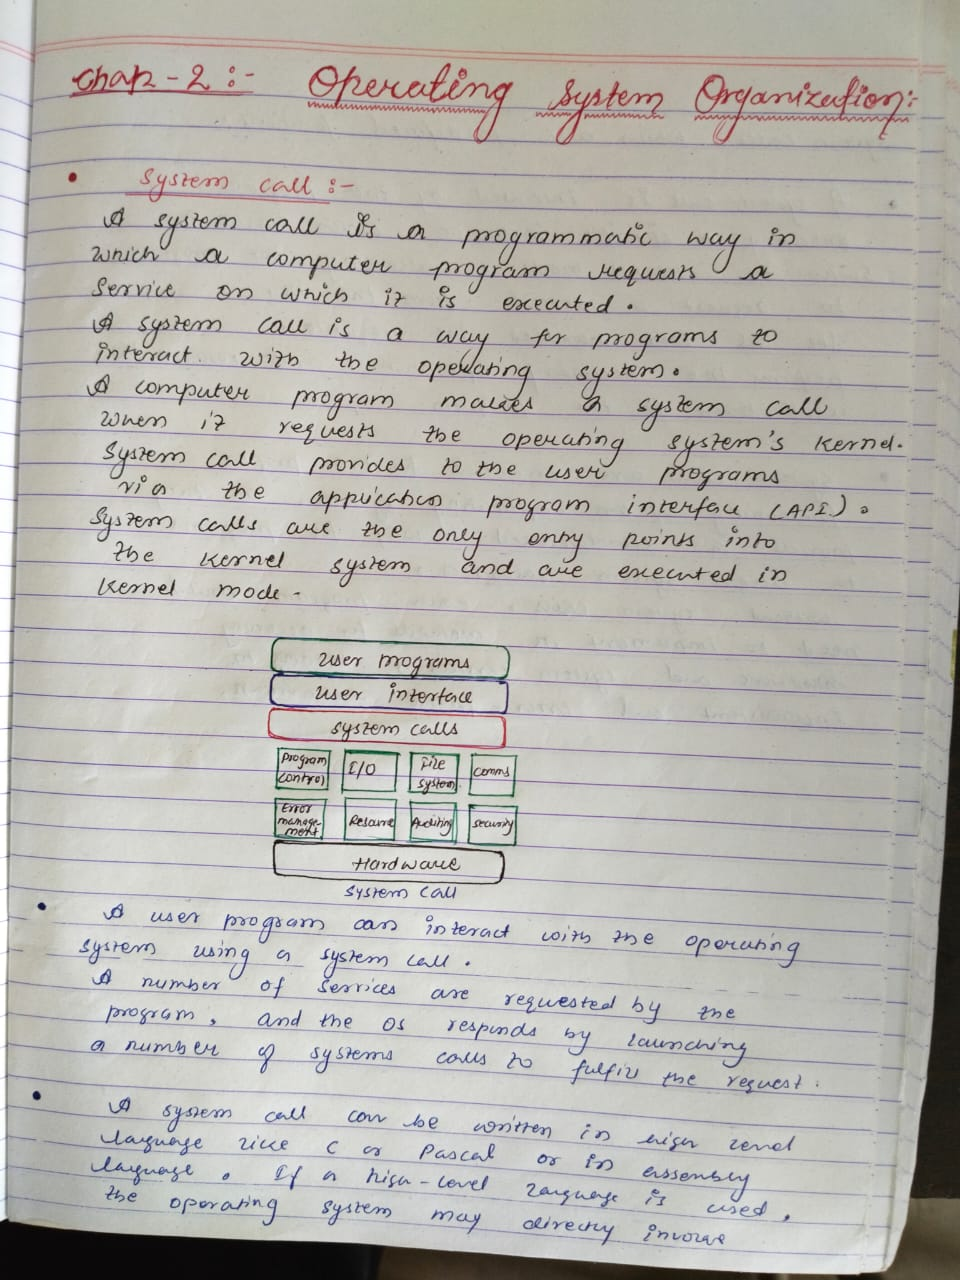 Chap-2 :- Operating System Organization:-
• System call :-
A system call is a programmatic way in
which a computer program requests a
service on which it is executed.
A system call is a way for programs to
interact with the operating system.
A computer program makes a system call
when it requests the operating system's kernel.
System call provides to the user programs
via the application program interface (API).
System calls are the only entry points into
the kernel system and are executed in
kernel mode.
User programs
User interface
system calls
Program control I/O File system comms
Error manage-ment Resource Auditing security
Hardware
System call
• A user program can interact with the operating
system using a system call.
A number of services are requested by the
program, and the OS responds by launching
a number of systems calls to fulfill the request.
• A system call can be written in high level
language like C or Pascal or in assembly
language. If a high-level language is used,
the operating system may directly involve